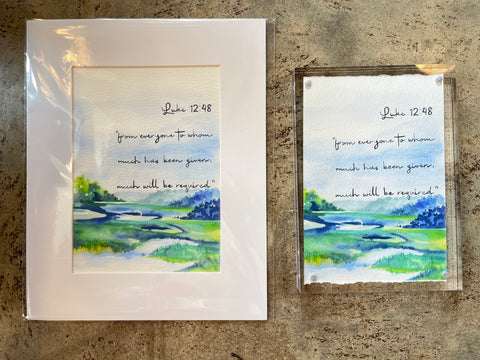 Luke 12:48
"from everyone to whom
much has been given,
much will be required"
Luke 12:48
"from everyone to whom
much has been given,
much will be required"